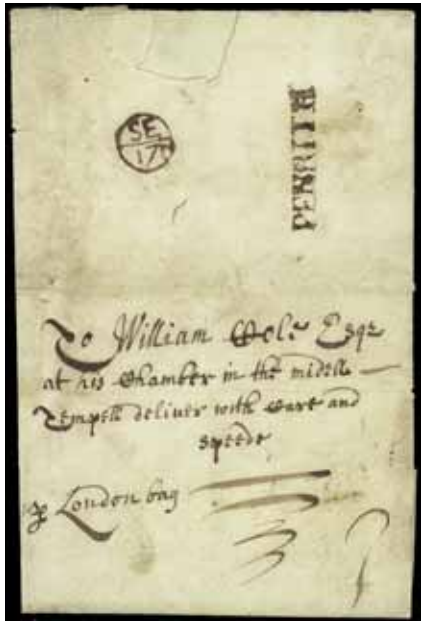 SE
17
PENRITH
To William Cole Esqr
at his Chamber in the midell
Tempell deliver with Care and
speede
London bag